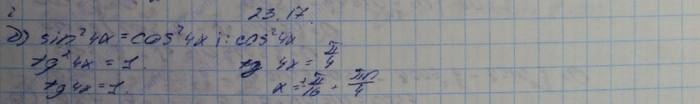 23.17.
б) sin²4x = cos²4x | : cos²4x
tg²4x = 1. 4x = π/4
tg4x = 1. x = ±π/16 + πn/4